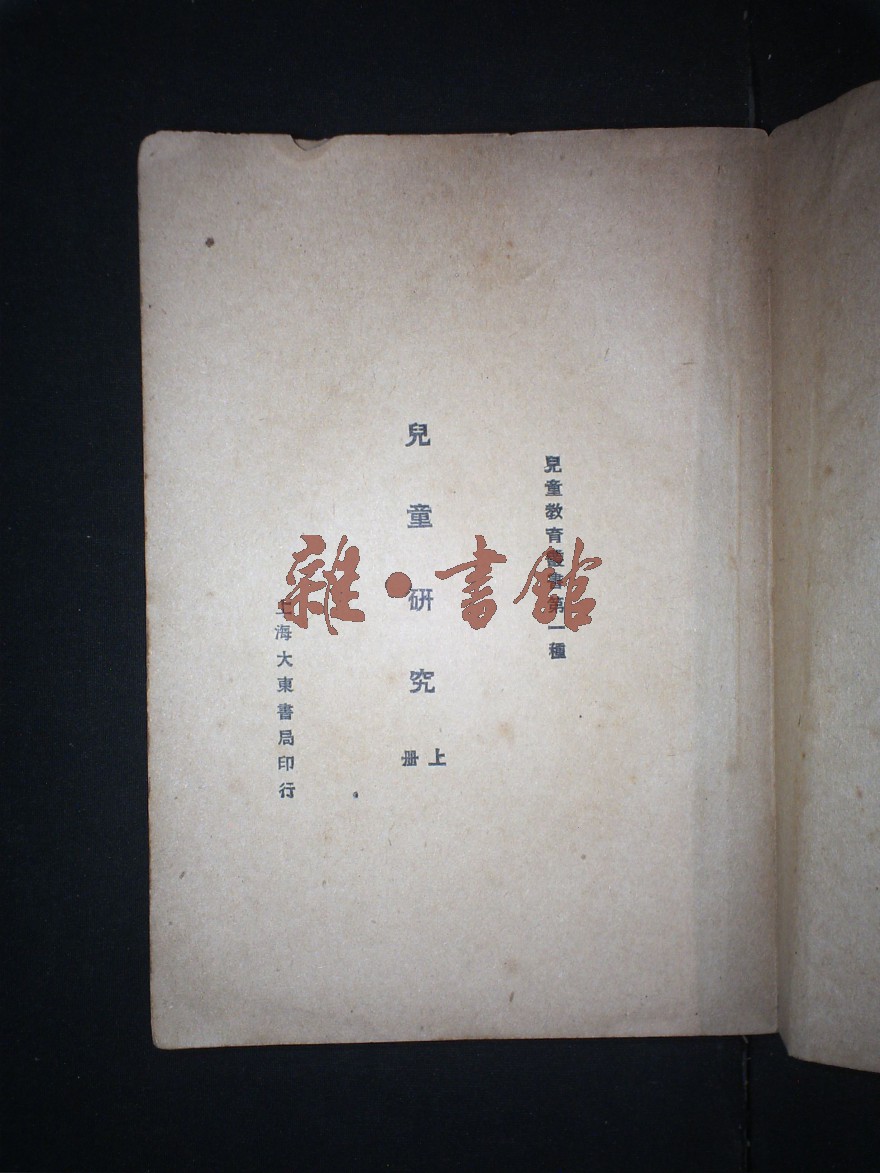 兒童教育叢書第一種
兒童研究
上册
上海大東書局印行
雜·書館